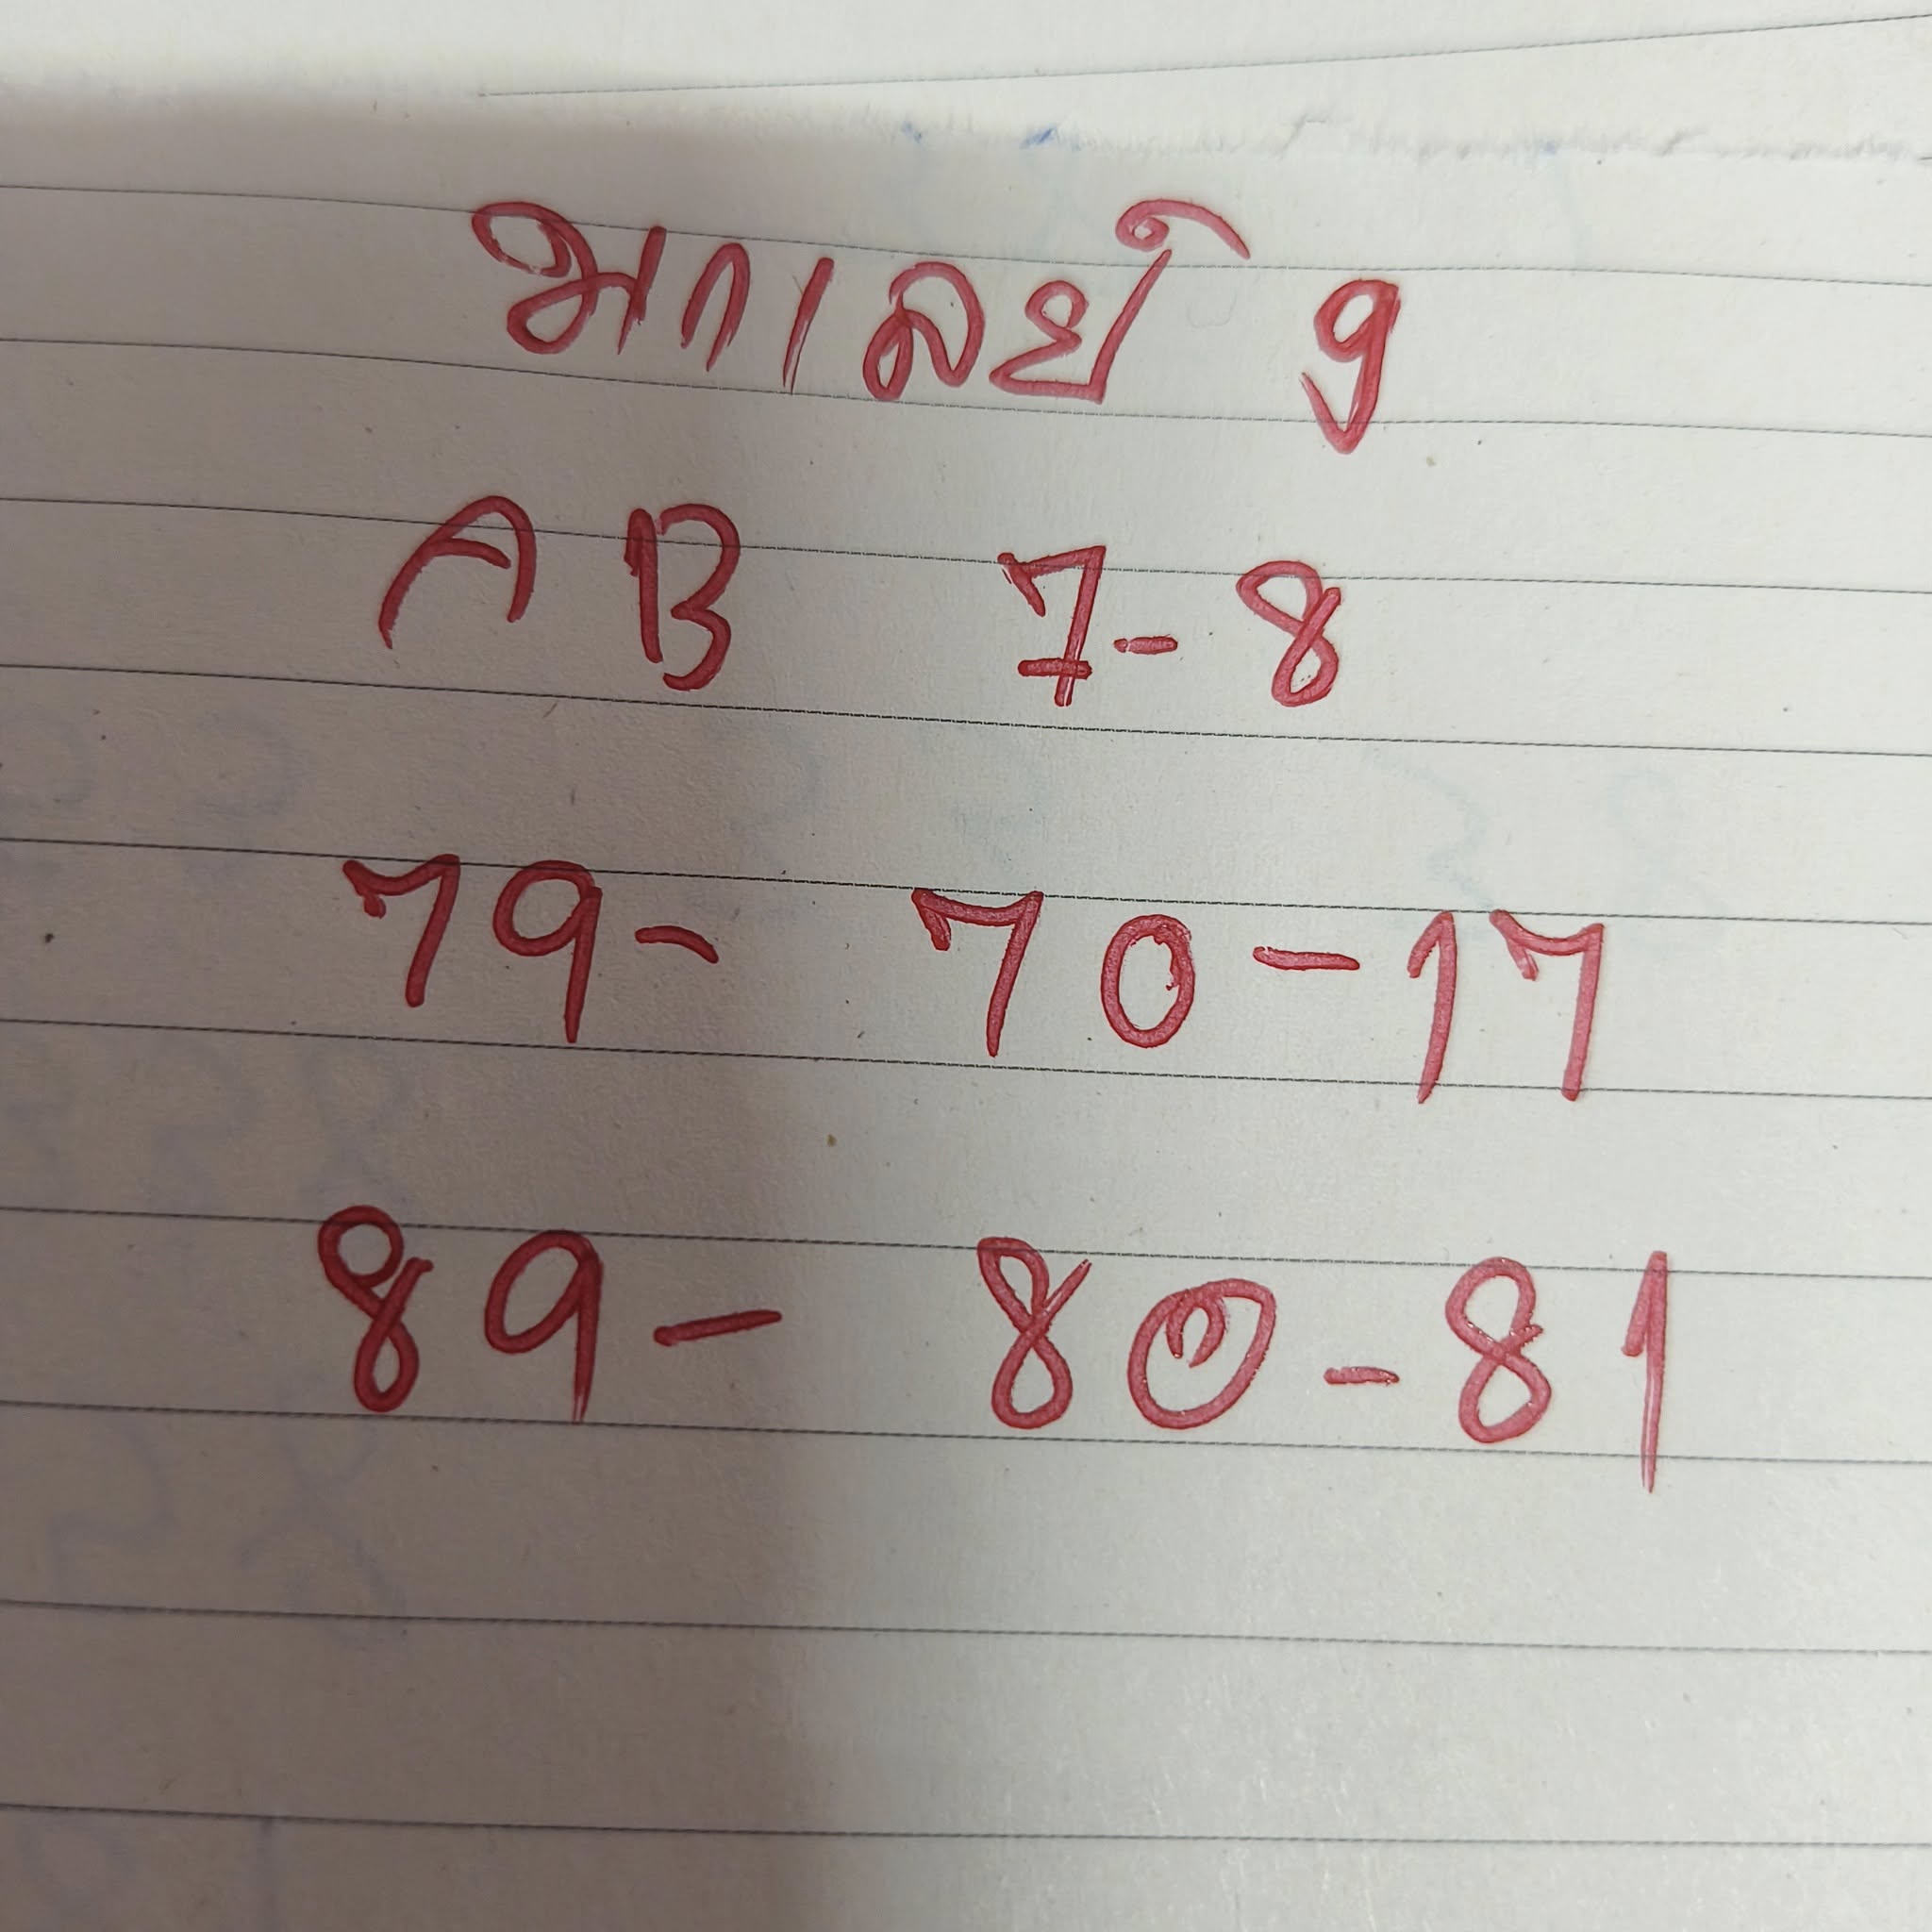 มาเลย์ 9
AB 7-8
79- 70-17
89- 80-81